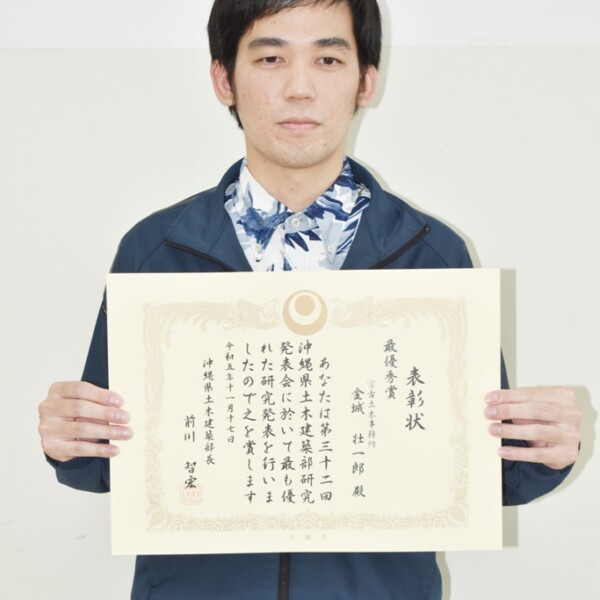 表彰状
最優秀賞
宮古土木事務所
金城 壮一郎 殿
あなたは第三十二回
沖縄県土木建築部研究
発表会に於いて最も優
れた研究発表を行いま
したので之を賞します
令和五年十一月十七日
沖縄県土木建築部長
前川 智宏
沖縄県